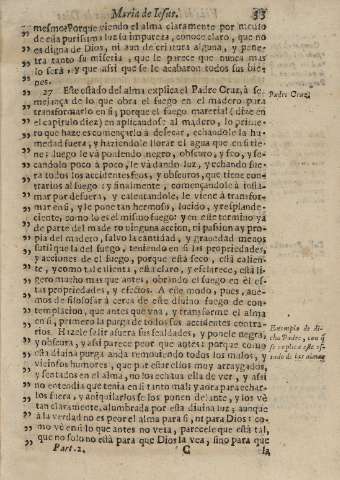 Maria de Iesus. 53
mesmo? Porque viendo el alma claramente por medio
de esta purissima luz su impureza, conoce claro, que no
es digna de Dios, ni aun de criatura alguna, y pene-
tra tanto su miseria, que le parece que nunca mas
lo será, y que assi que se le acabaron todos sus bie-
nes.
27 Este estado del alma explica el Padre Cruz, à se
Padre Cruz
mejança de lo que obra el fuego en el madero para
transformarlo en si; porque el fuego material (dize en
el capitulo diez) en aplicandose al madero, lo prime-
ro que haze es començarlo à desecar, echandole la hu-
medad fuera, y haziendole llorar el agua que en si tie
ne: luego le và poniendo negro, obscuro, y feo, y se-
candolo poco à poco, le và dando luz, y echando fue-
ra todos los accidentes feos, y obscuros, que tiene con-
trarios al fuego: y finalmente, començandole à infla-
mar por defuera, y calentandole, le viene à transfor-
mar en si, y le pone tan hermoso, lucido, y resplande-
ciente, como lo es el mismo fuego: y en este termino yà
de parte del madero ninguna accion, ni passion ay pro
pia del madero, salvo la cantidad, y gravedad menos
sutil que la del fuego, teniendo en si las propriedades,
y acciones de el fuego, porque està seco, està calien-
te, y como tal calienta, està claro, y esclarece, està li-
gero mucho mas que antes, obrando el fuego en él es-
tas propriedades, y efectos. A este modo, pues, ave-
mos de filosofar à cerca de este divino fuego de con-
templacion, que antes que una, y transforme el alma
en si, primero la purga de todos sus accidentes contra-
rios. Hazele salir afuera sus fealdades, y ponele negra,
Exemplo de di-
cho Padre, con q
se explica este es-
tado de las almas
y obscura, y assi parece peor que antes: porque como
esta divina purga anda removiendo todos los malos, y
viciosos humores, que por estar ellos muy arraygados,
y sentados en el alma, no los echava ella de ver, y assi
no entendia que tenia en si tanto mal; y aora para echar-
los fuera, y aniquilarlos se los ponen delante, y los vè
tan claramente, alumbrada por esta divina luz; aunque
à la verdad no es peor el alma para si, ni para Dios: co-
mo vè en si lo que antes no veta, parecele que està tal,
que no solo no està para que Dios la vea, sino para que
Part. 2. C la